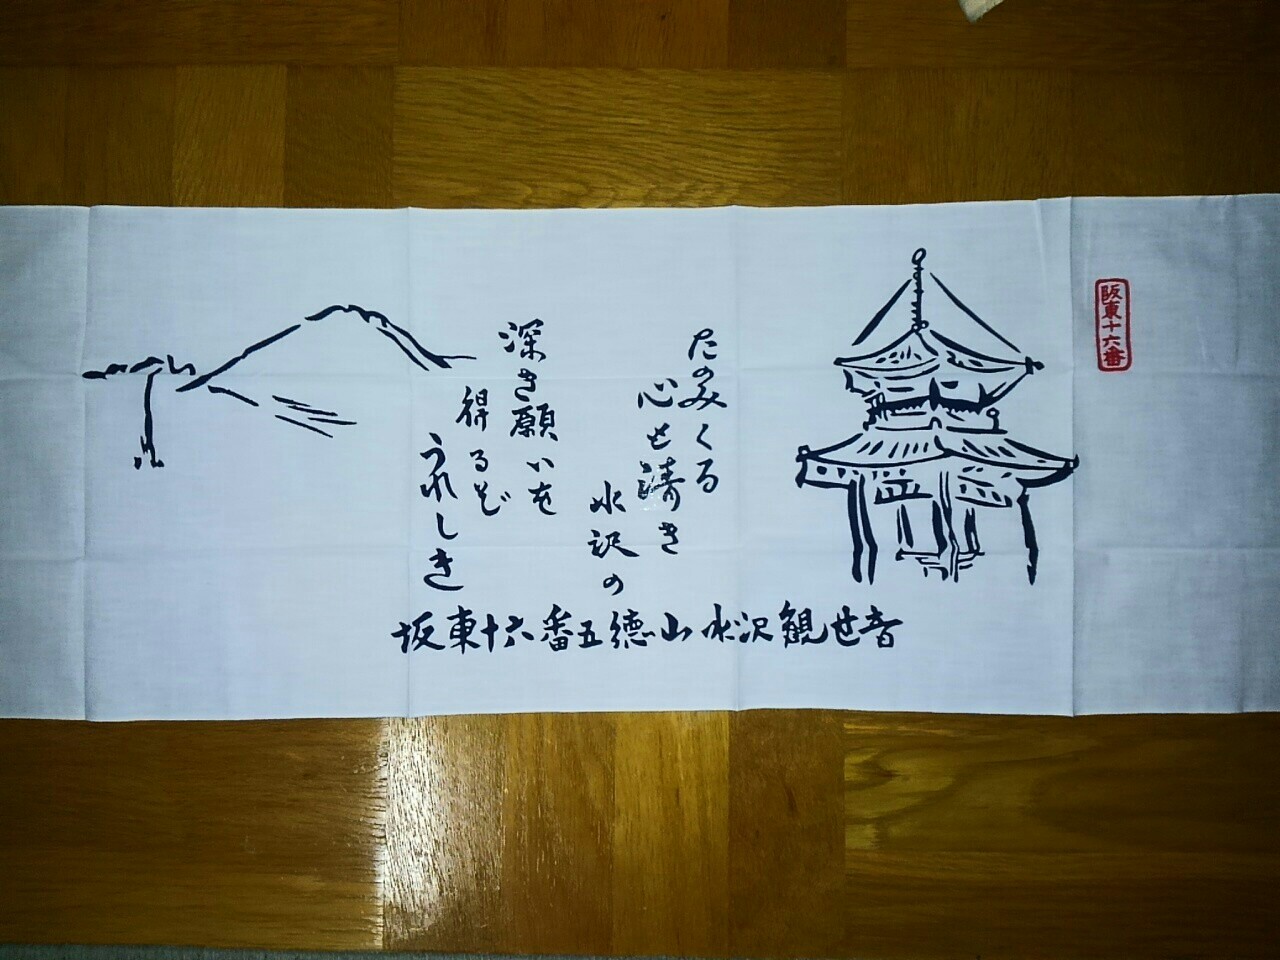 阪東十六番
たのみくる
心も清き
水沢の
深き願いを
得るぞ
うれしき
坂東十六番五徳山水沢観世音